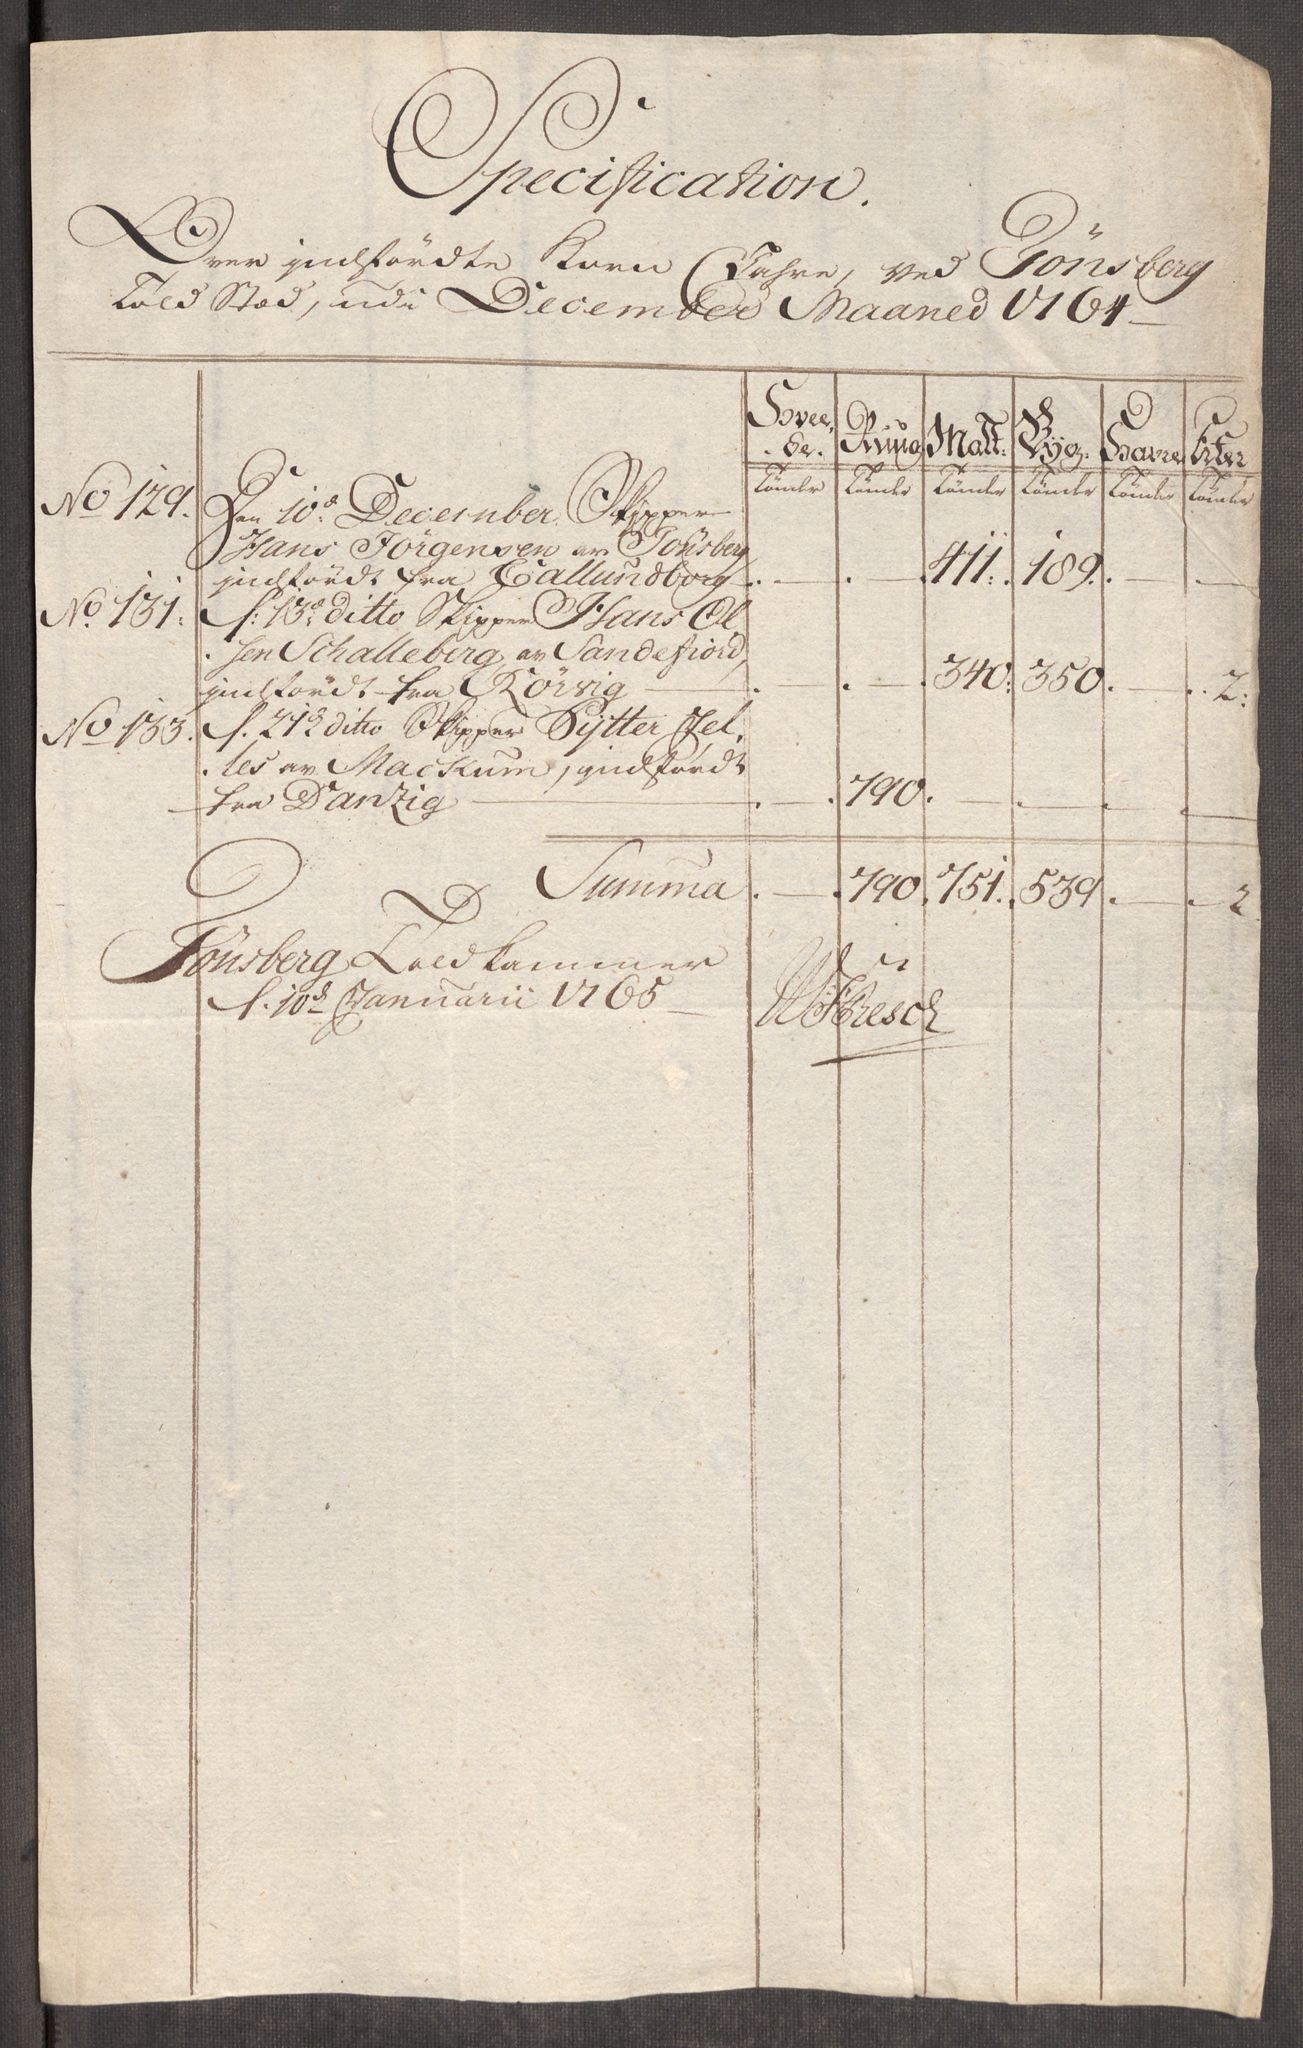 Specification.
Over indfördte Korn Vahre, ved Tönsberg
Told Stæd, udi December Maaned 1764
Hvee- Rûug Malt: Byg. Havre Erter
de.
Tönder Tönder Tönder Tönder Tönder Tönder
No 129. Den 10d December Skipper
Hans Jörgensen av Tönsberg
indfördt fra Callundborg - - 411: 189. - -
No. 131: d: 13d ditto Skipper Hans Ol
sen Schalleberg av Sandefiord,
indfördt fra Rörvig - - 340: 350. - 2:
No 133. d. 21d ditto Skipper Pÿtter Jel,
les av Mackum, indfördt
fra Danzig - 790. - - - -
Summa - 790. 751. 539. - 2
Tönsberg Told Kammer
d. 10d Januarii 1765